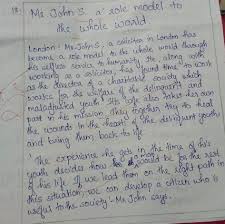 Mr John S, a role model to
the whole world
London : Mr John S, a solicitor in London has
become a role model to the whole world through
his selfless service to humanity. He, along with
working as a solicitor, has found time to work
as the director of a charitable society which
works for the welfare of the delinquent and
maladjusted youth. His wife also takes her own
part in his mission. They together try to heal
the wounds in the heart of the delinquent youth
and bring them back to life
The experience he gets in the time of his
youth decides how he would be for the rest
of his life. If we lead them on the right path in
this situation, we can develop a citizen who is
useful to the society - Mr John says.